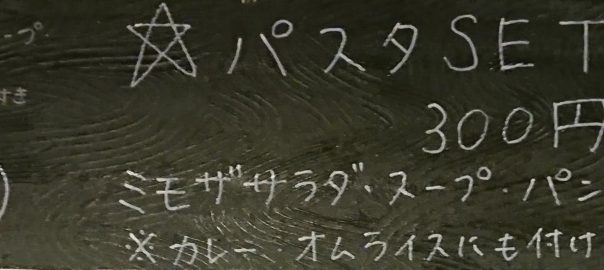 ープ
☆パスタSET
すき
300円
ミモザサラダ・スープ・パン
※カレー オムライスにも付け